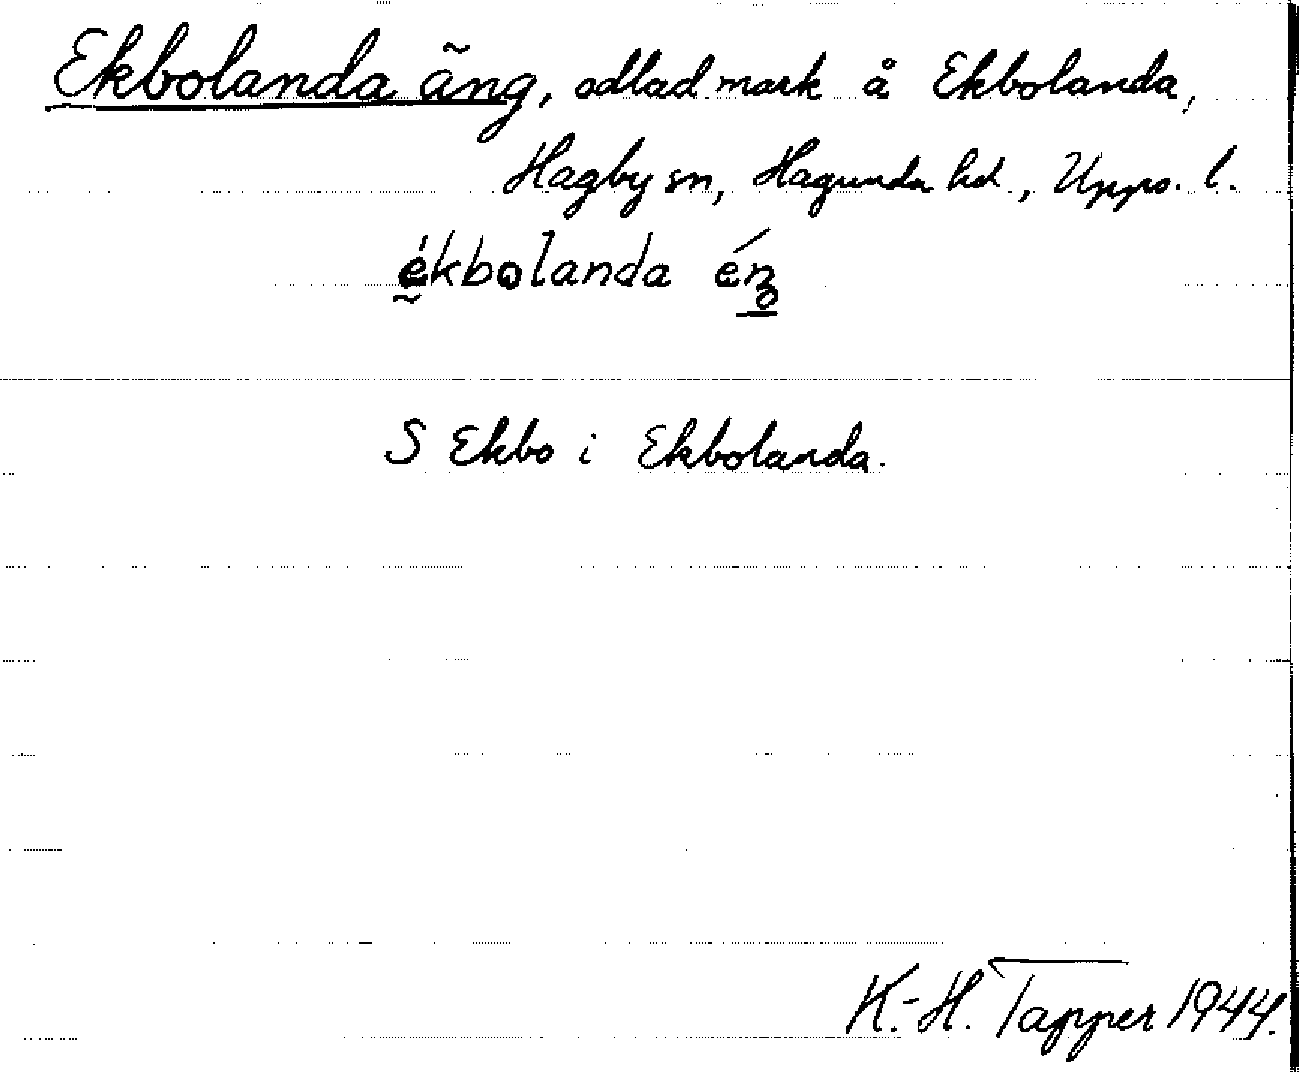 Ekbolanda äng, odlad mark å Ekbolanda,
Hagby sn, Hagunda hd., Upps. l.
ékbolanda éŋ
S Ekbo i Ekbolanda.
K.-H. Tapper 1944.